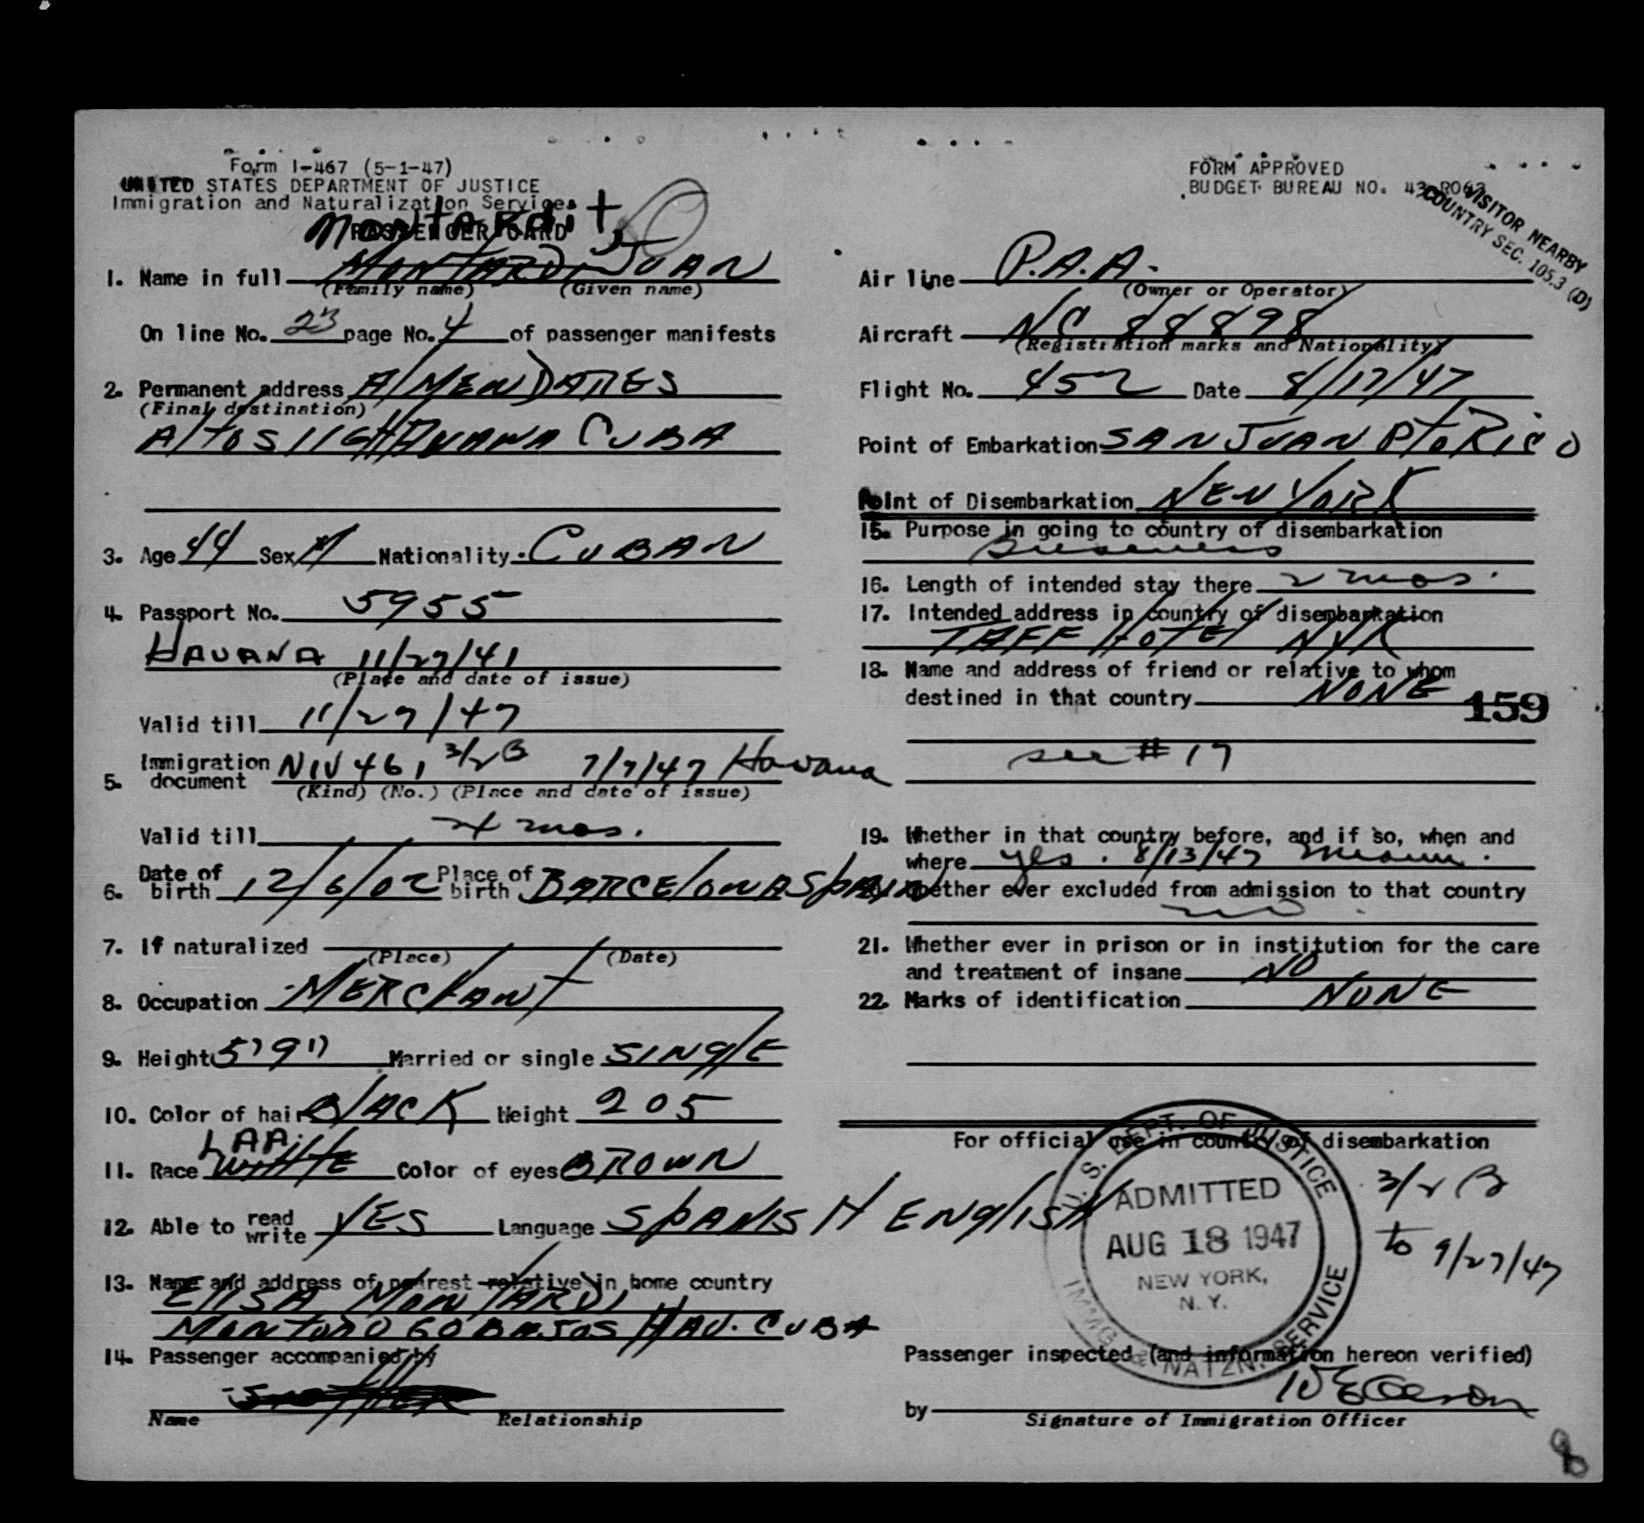 Form I-467 (5-1-47)
UNITED STATES DEPARTMENT OF JUSTICE
Immigration and Naturalization Service
PASSENGER CARD
FORM APPROVED
BUDGET BUREAU NO. 43-R063
VISITOR NEARBY
COUNTRY SEC. 105.3 (D)
1. Name in full JUAN
(Family name) (Given name)
On line No. 23 page No. 4 of passenger manifests
2. Permanent address AlMENDARES
(Final destination)
AltOS 116 HAVANA CUBA
3. Age 44 Sex M Nationality CUBAN
4. Passport No. 5955
HAVANA 11/27/41
(Place and date of issue)
Valid till 11/27/47
5. Immigration document NIV 461 3/2B 7/7/47 Havana
(Kind) (No.) (Place and date of issue)
Valid till mos.
6. Date of birth 12/6/02 Place of birth BARCElONA SpAIN
7. If naturalized
(Place) (Date)
8. Occupation MERCHANT
9. Height 5'9" Married or single SINglE
10. Color of hair BlACK Weight 205
11. Race WHITE Color of eyes BROWN
12. Able to read write YES Language SpANISH ENglISH
13. Name and address of nearest relative in home country
ElISA MONTARDI
60 BAJOS HAV. CUBA
14. Passenger accompanied by
Name Relationship
Air line P.A.A.
(Owner or Operator)
Aircraft NC 88898
(Registration marks and Nationality)
Flight No. 452 Date 8/17/47
Point of Embarkation SAN JUAN PtoRICO
Point of Disembarkation NEW YORK
15. Purpose in going to country of disembarkation
16. Length of intended stay there 2 mos.
17. Intended address in country of disembarkation
TAFF HOTEl NYK
18. Name and address of friend or relative to whom
destined in that country NONE
159
see # 17
19. Whether in that country before, and if so, when and
where yes. 8/13/47 Miami.
Whether ever excluded from admission to that country
no.
21. Whether ever in prison or in institution for the care
and treatment of insane NO
22. Marks of identification NONE
For official use in country of disembarkation
U.S. DEPT. OF JUSTICE
ADMITTED
AUG 18 1947
NEW YORK,
N. Y.
IMMG & NATZN. SERVICE
3/2 B
to 9/27/47
Passenger inspected (and information hereon verified)
by
Signature of Immigration Officer